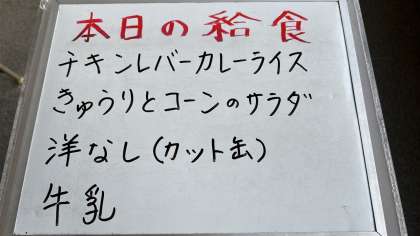 本日の給食
チキンレバーカレーライス
きゅうりとコーンのサラダ
洋なし(カット缶)
牛乳